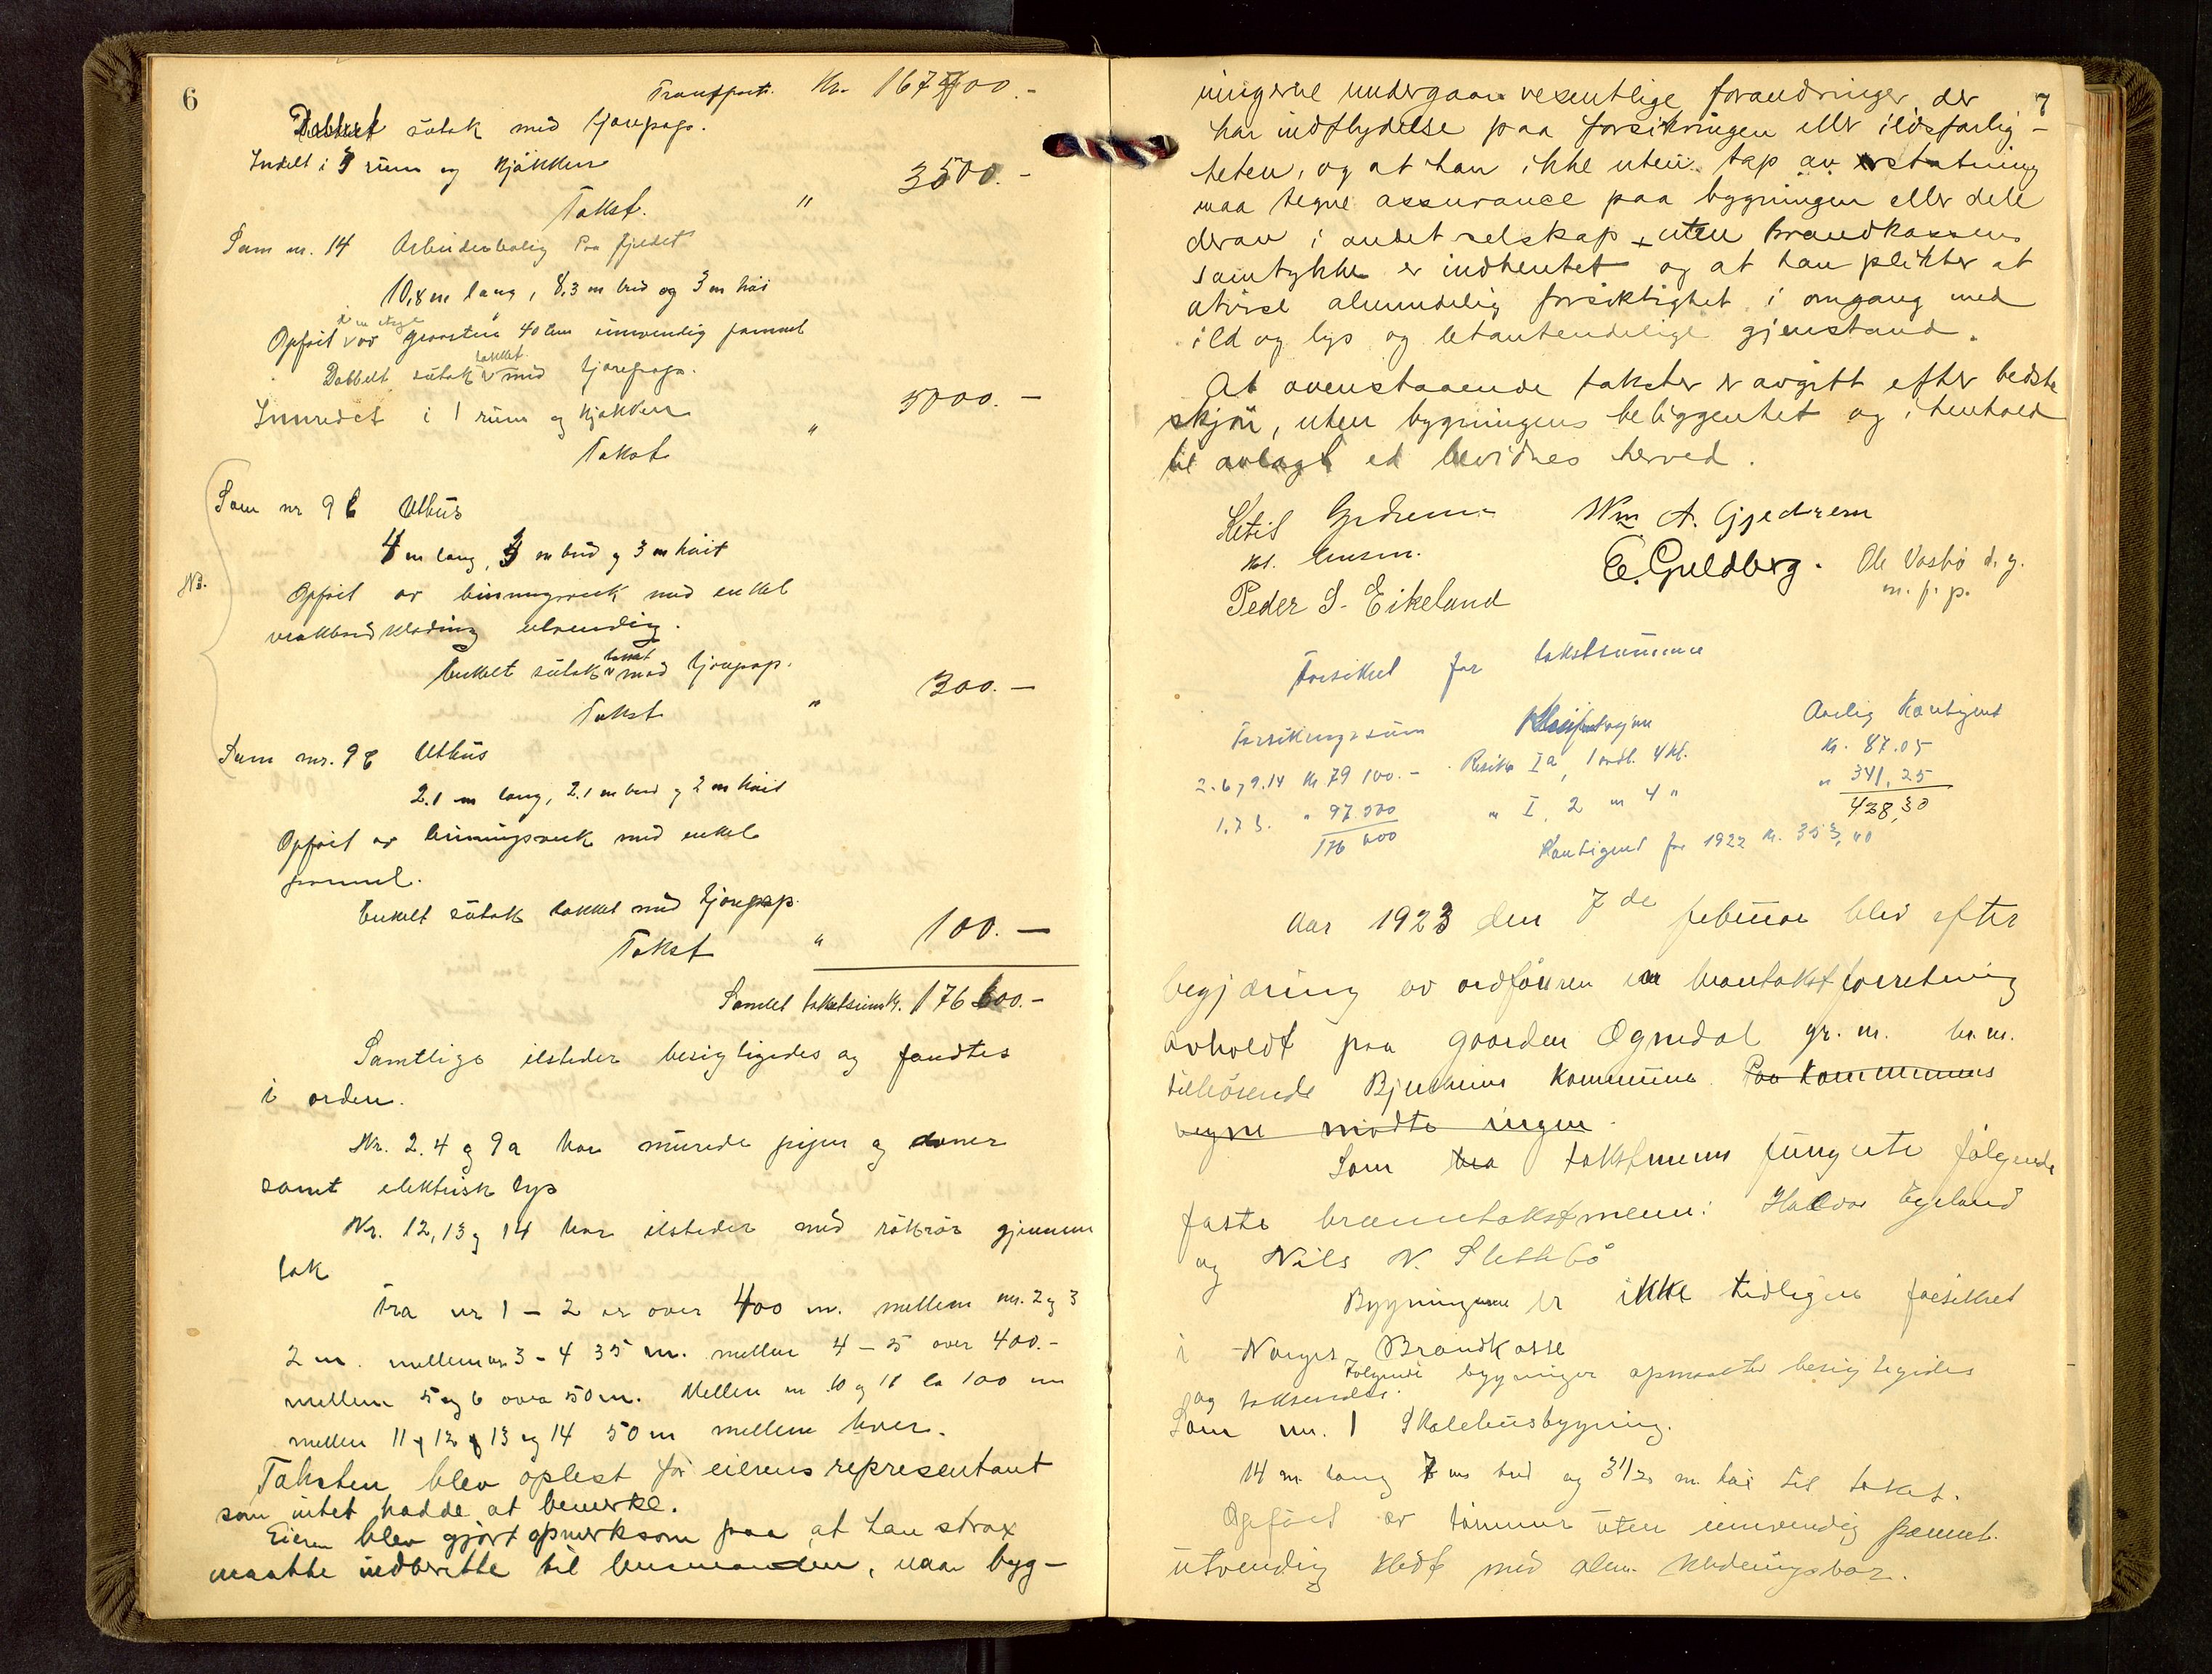 6
Transport. Kr. 167700.-
Dobbelt sutak med tjærepap.
Indelt i 3 rum og kjøkken
Takst. " 3500.-
Som nr. 14 Arbeiderbolig paa fjeldet
10,8 m lang, 8,3 m bred og 3 m høi
Opført av graasten 40 cm invendig pannel
Dobbelt sutak takket med tjærepap.
Innredet i 1 rum og kjøkken
Takst " 5000.-
Som nr 9 b Uthus
4 m lang, 3 m bred og 3 m høit
NB.
Opført av binningsverk med enkel
vrakbordklædning utvendig.
Enkelt sutak takket med tjærepap.
Takst " 300.-
Som nr. 9 c Uthus
2.1 m lang, 2.1 m bred og 2 m høit
Opført av binningsverk med enkel
pannel.
Enkelt sutak takket med tjærepap.
Takst " 100.-
Samlet takstsum kr. 176600.-
Samtlige ilsteder besigtigedes og fandtes
i orden.
Nr. 2. 4 og 9a har murede piper og ovner
samt elektrisk lys
Nr. 12, 13 og 14 har ilsteder med røkrør gjennem
tak
Fra nr 1 - 2 er over 400 m. mellem nr. 2 og 3
2 m. mellem nr. 3 - 4 35 m. mellem 4 - 5 over 400.-
mellem 5 og 6 over 50 m. Mellem nr 10 og 11 ca 100 m
mellem 11 og 12 og 13 og 14 50 m mellem hver.
Taksten blev oplest for eierens representant
som intet hadde at bemerke.
Eieren blev gjort opmerksom paa at han strax
maatte indberette til lensmanden, naar byg-
7
ningerne undergaar vesentlige forandringer, der
har indflydelse paa forsikringen eller ildsfarlig-
heten, og at han ikke uten tap av erstatning
maa tegne assurance paa bygningen eller dele
derav i andet selskap, uten Brandkassens
samtykke er indhentet og at han plikter at
utvise almindelig forsiktighet i omgang med
ild og lys og letantendelige gjenstand.
At ovenstaaende takster er avgitt efter bedste
skjøn, uten bygningens beliggenhet og i henhold
til avlagt ed bevidnes herved.
Ketil Gjedrem Wm A. Gjedrem
Kst. lensm. E. Guldberg. Ole Vasbø d.y.
Peder S. Eikeland m. f. p.
Forsikret for takstsummen
Forsikringssum Klassifikasjon Aarlig Kontigent
2. 6 og 9. 14 Kr 79 100.- Risiko Ia, 1 avdl. 4 kl. Kr. 87.05
1. 7 3. " 97.500 " I, 2 " 4 " " 341,25
176 600 428,30
Kontigent for 1922 Kr. 353,40
Aar 1923 den 7de februar blev efter
begjæring av ordføreren en brantakstforretning
avholdt paa gaarden Ognedal gr. nr. br. nr.
tilhørende Bjerkreim kommune. Paa kommunens
vegne mødte ingen.
Som takstmenn fungerte følgende
faste branntakstmenn: Halvor Egeland
og Nils N. Slettebø
Bygningerne er ikke tidligere forsikret
i Norges Brandkasse
Følgende bygninger opmaaltes besigtigedes
og takseredes:
Som nr. 1 Skolehusbygning.
14 m. lang 7 m bred og 3 1/2 m. høi til taket.
Opført av tømmer uten innvendig pannel.
utvendig klædt med alm. klædningsbor.